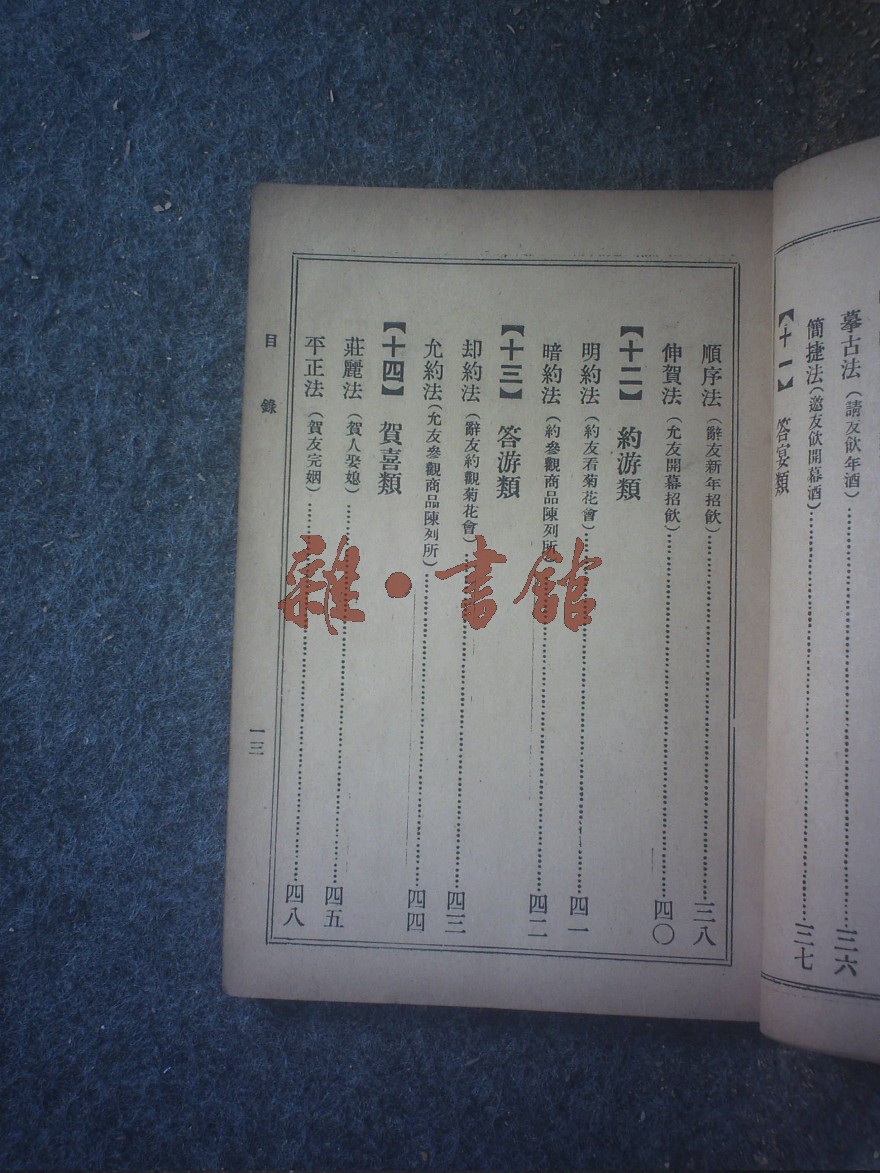 摹古法（請友飲年酒）……三六
簡捷法（邀友飲開幕酒）……三七
【十一】 答宴類
順序法（辭友新年招飲）……三八
伸賀法（允友開幕招飲）……四〇
【十二】 約游類
明約法（約友看菊花會）……四一
暗約法（約參觀商品陳列所）……四二
【十三】 答游類
却約法（辭友約觀菊花會）……四三
允約法（允友參觀商品陳列所）……四四
【十四】 賀喜類
莊麗法（賀人娶媳）……四五
平正法（賀友完姻）……四八
目錄
一三
雜·書館